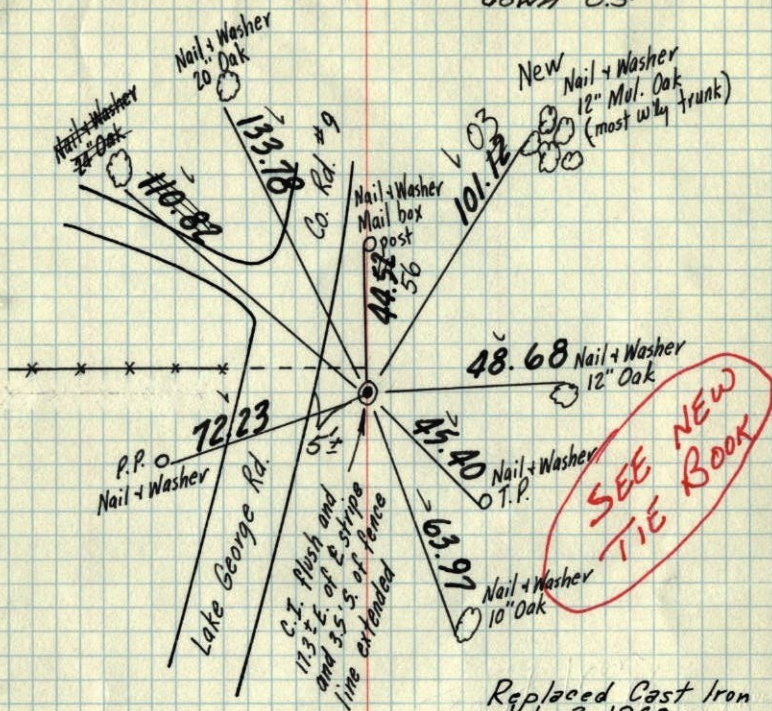 Nail & Washer
20" Oak
133.78
Nail & Washer
24" Oak
110.82
Co. Rd. #9
New
Nail & Washer
12" Mul. Oak
(most w'ly trunk)
03
101.12
Nail & Washer
Mail box
post
44.52
56
48.68
Nail & Washer
12" Oak
72.23
P.P.
Nail & Washer
5'±
45.40
Nail & Washer
T.P.
63.97
Nail & Washer
10" Oak
Lake George Rd.
C.I. flush and
17.3± E. of ₵ stripe
and 3.5' S. of fence
line extended
SEE NEW
TIE BOOK
Replaced Cast Iron